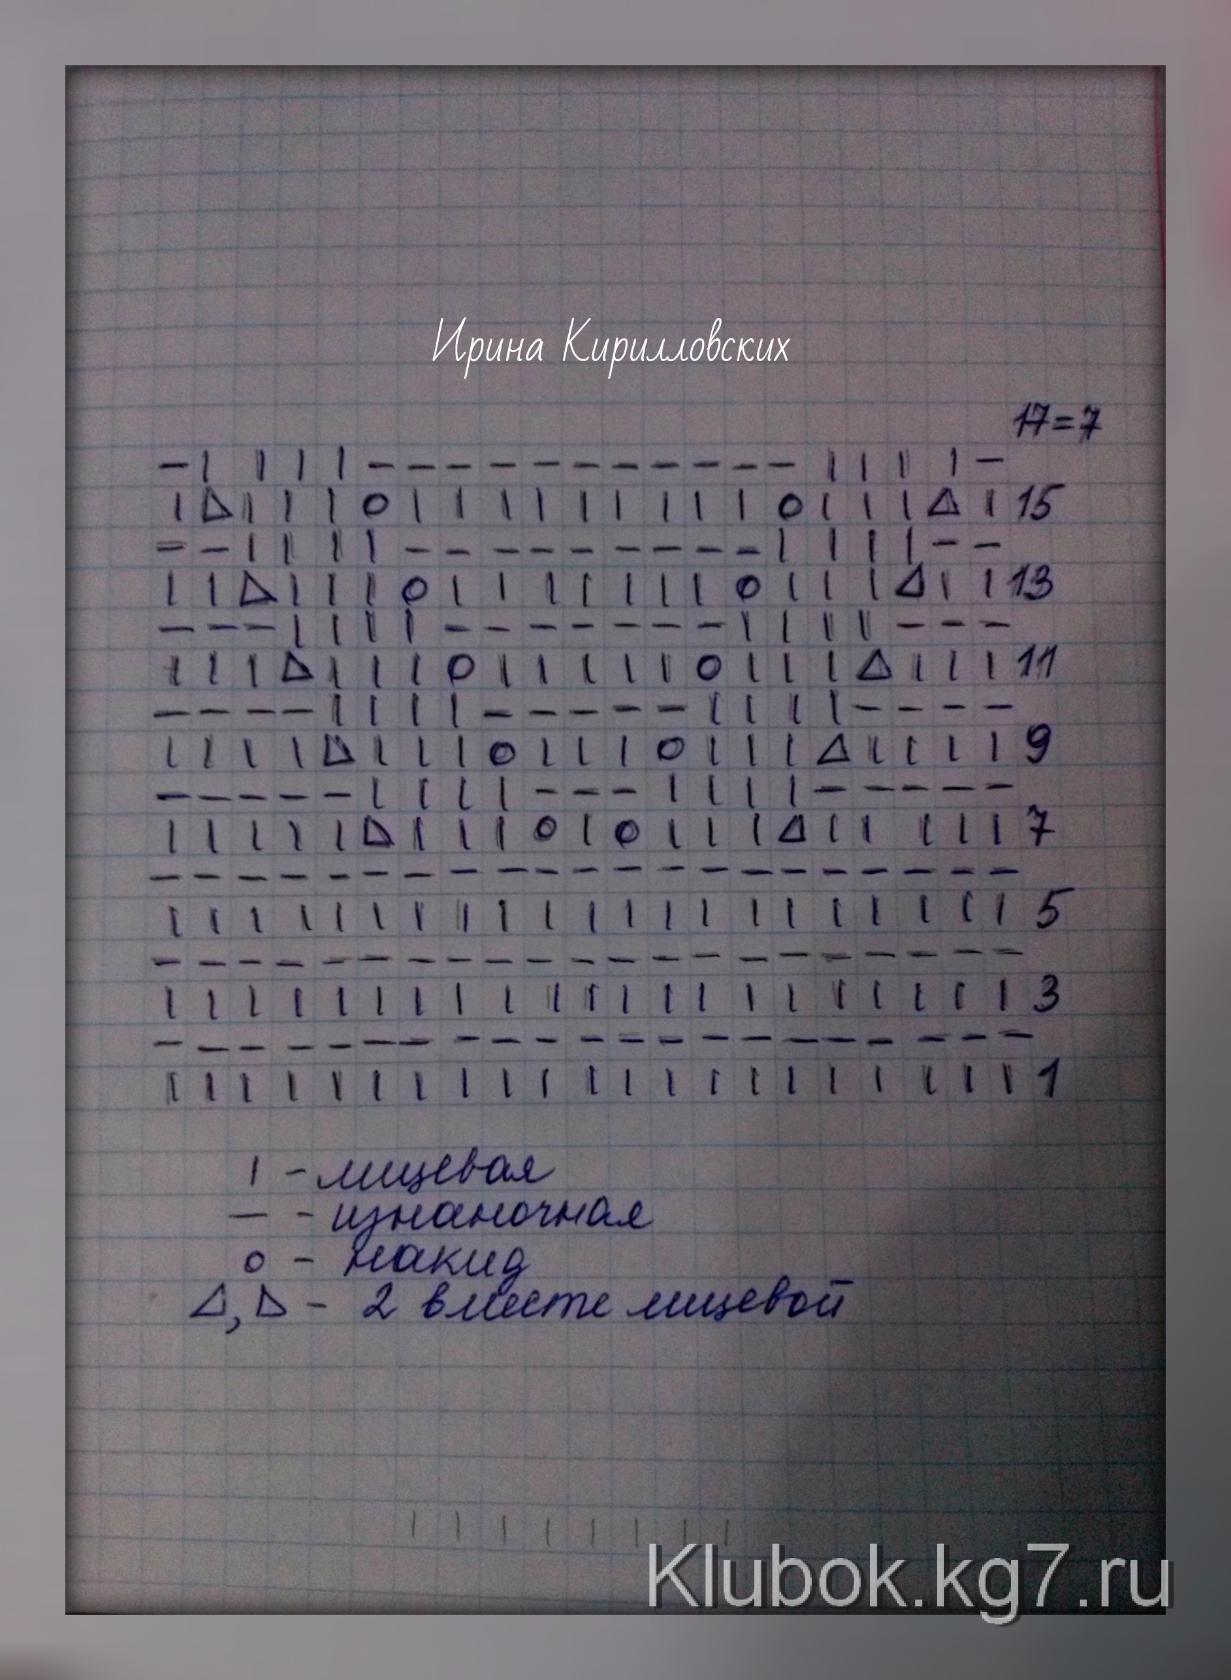 Ирина Кирилловских
17=7
— I I I I — — — — — — — — — — — I I I I —
I ◺ I I I o I I I I I I I I I o I I I ◿ I 15
— — I I I I — — — — — — — — — I I I I — —
I I ◺ I I I o I I I I I I I o I I I ◿ I I 13
— — — I I I I — — — — — — — I I I I — — —
I I I ◺ I I I o I I I I I o I I I ◿ I I I 11
— — — — I I I I — — — — — I I I I — — — —
I I I I ◺ I I I o I I I o I I I ◿ I I I I 9
— — — — — I I I I — — — I I I I — — — — —
I I I I I ◺ I I I o I o I I I ◿ I I I I I 7
— — — — — — — — — — — — — — — — — — — — —
I I I I I I I I I I I I I I I I I I I I I 5
— — — — — — — — — — — — — — — — — — — — —
I I I I I I I I I I I I I I I I I I I I I 3
— — — — — — — — — — — — — — — — — — — — —
I I I I I I I I I I I I I I I I I I I I I 1
I – лицевая
— – изнаночная
o – накид
◿, ◺ – 2 вместе лицевой
I I I I I I I I
Klubok.kg7.ru